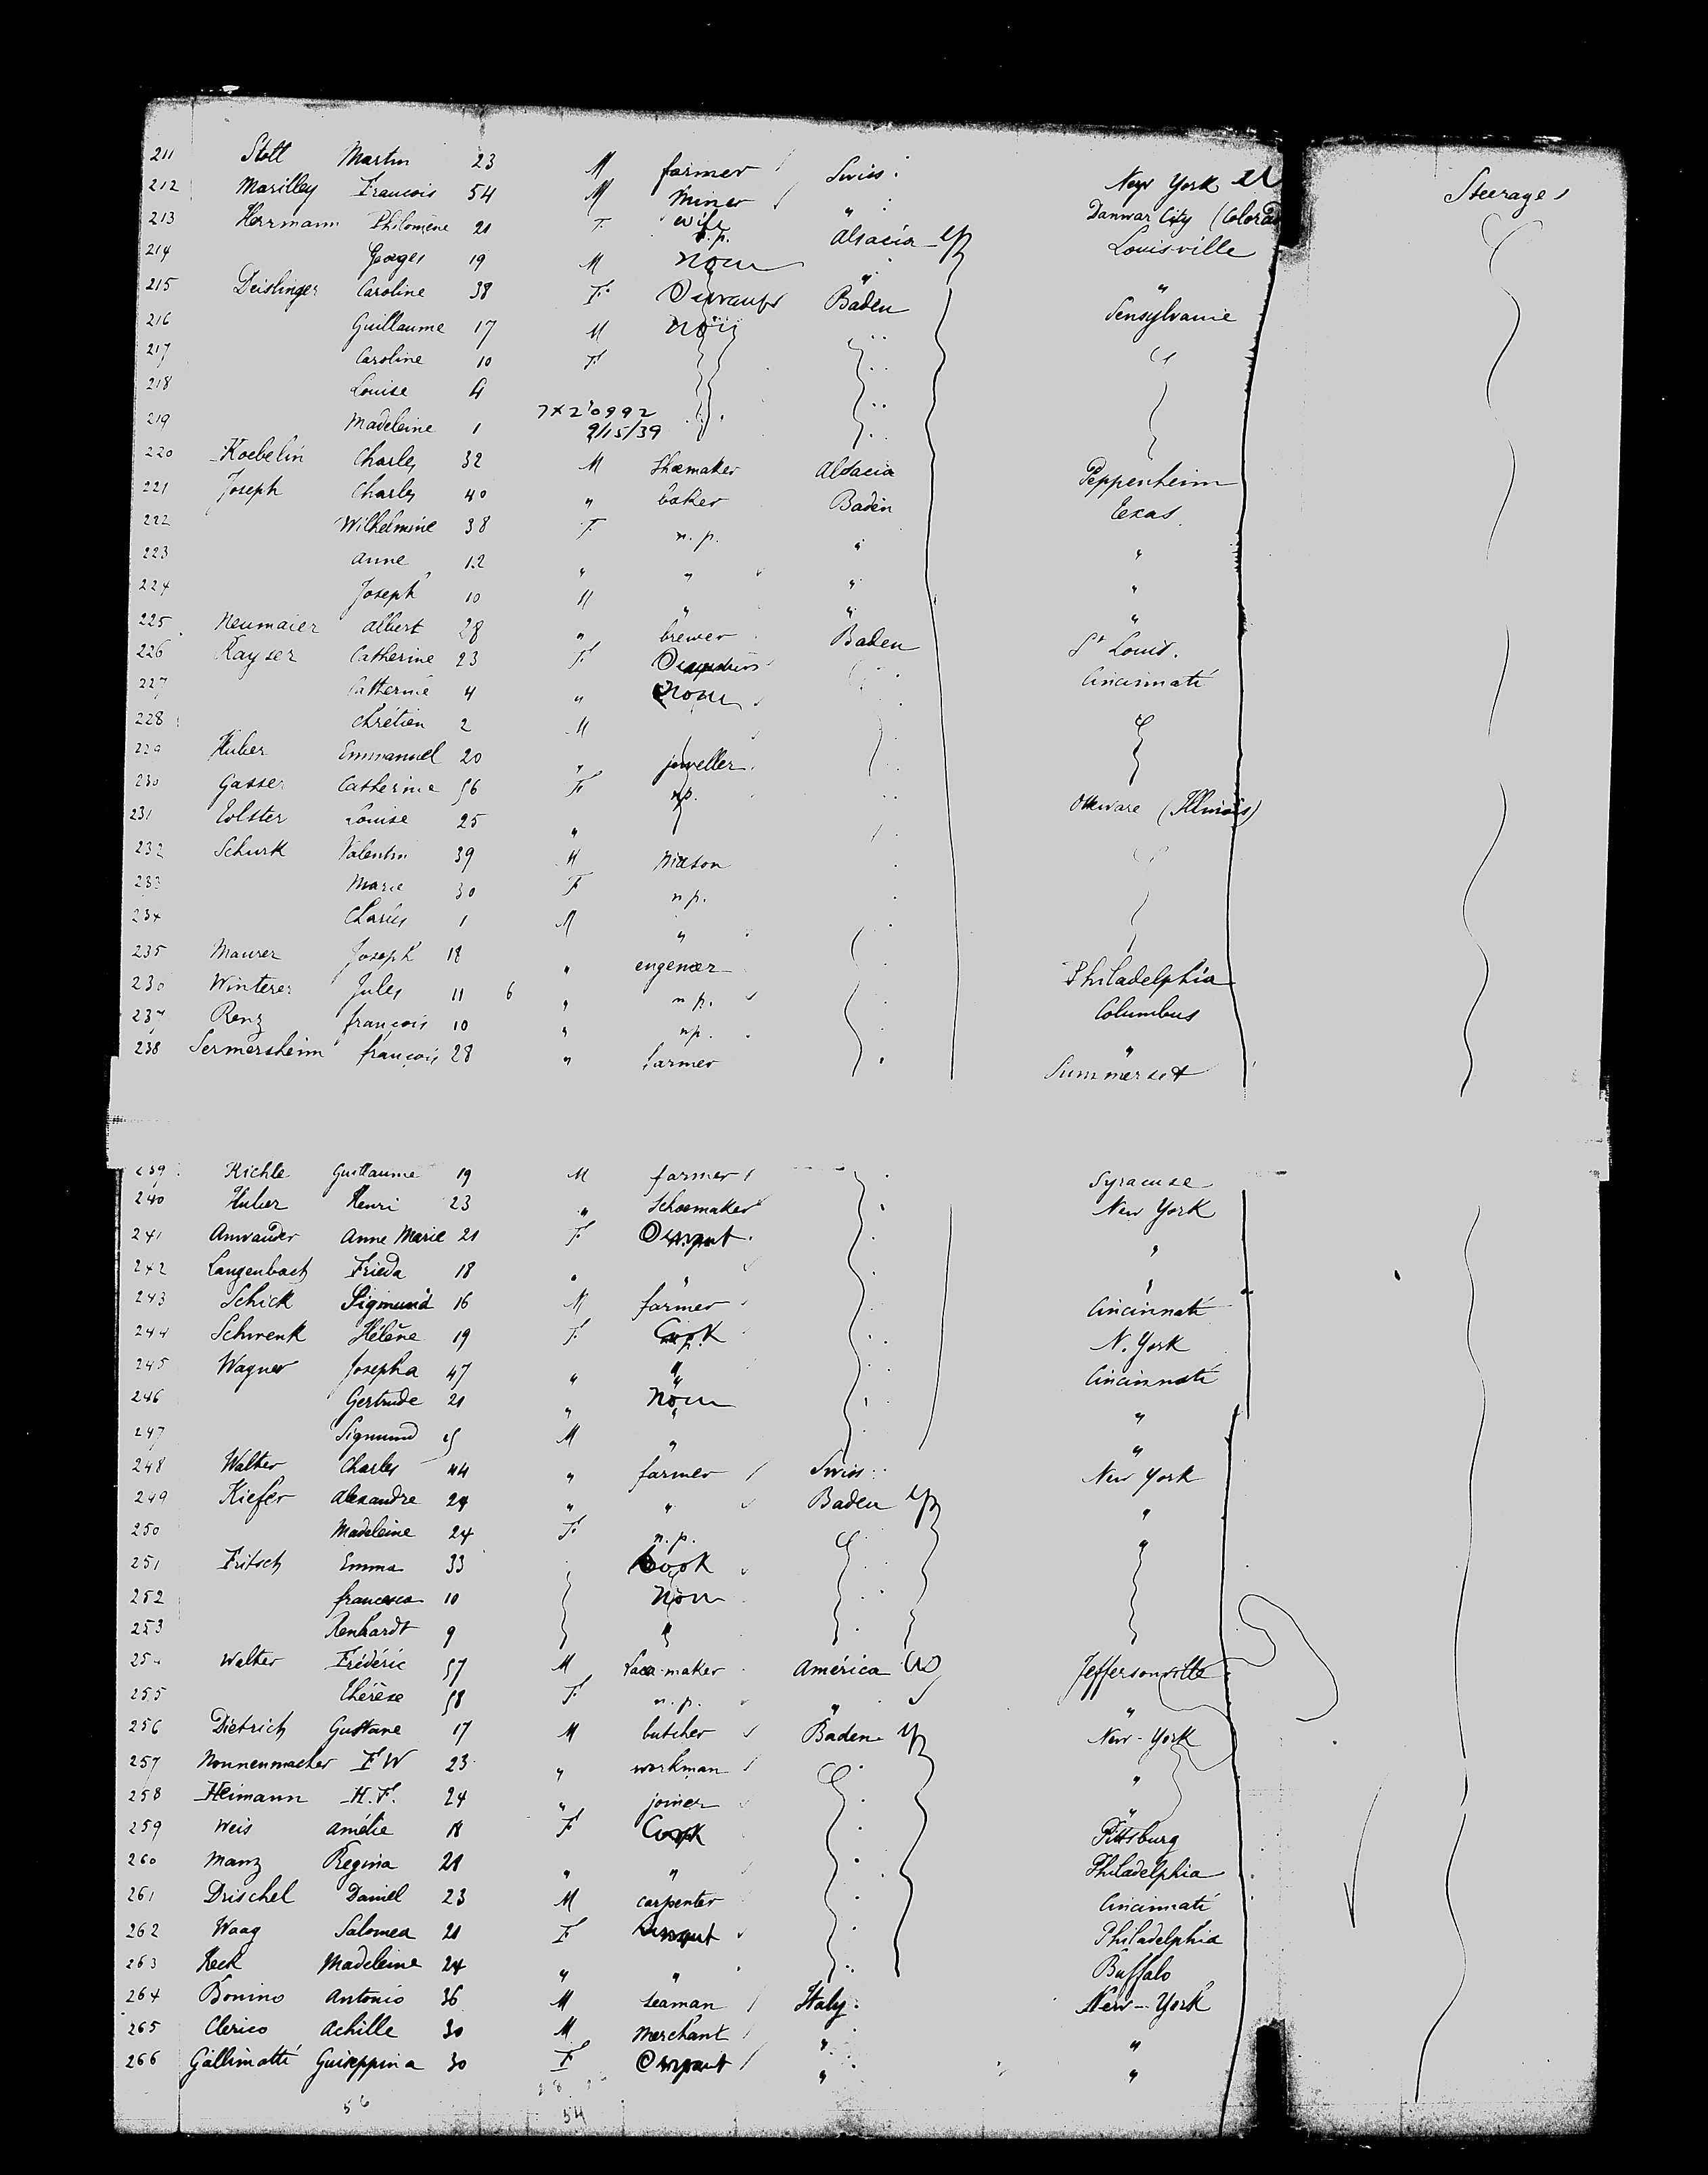 211 Stoll Martin 23 M farmer Swiss New York Steerage
212 Marilley Francois 54 M miner " Danwar City (Colorad
213 Herrmann Philomène 21 F. wife n.p. Alsacia Louisville
214 Georges 19 M None " "
215 Deislinger Caroline 38 F. Baden Pensylvanie
216 Guillaume 17 M
217 Caroline 10 F
218 Louise 4
7x210992
219 Madeleine 1 9/15/39
220 Koebelin Charles 32 M Shoemaker Alsacia Peppenheim
221 Joseph Charles 40 " baker Baden Texas
222 Wilhelmine 38 F n.p. " "
223 Anne 12 " " " "
224 Joseph 10 M " " "
225 Neumaier Albert 28 " brewer Baden St Louis.
226 Kayser Catherine 23 F. Cincinnati
227 Catherine 4 " None
228 Chrétien 2 M
229 Huber Emmanuel 20 " jeweller
230 Gasser Catherine 56 F n.p. (Illinois)
231 Louise 25 "
232 Schurk Valentin 39 M mason
233 Marie 30 F n.p.
234 Charles 1 M "
235 Maurer Joseph 18 " engeneer Philadelphia
236 Winterer Jules 11 6 " n.p. Columbus
237 Renz françois 10 " n.p. "
238 Sermersheim françois 28 " farmer Summerset
239 Kichle Guillaume 19 M farmer Syracuse
240 Huber Henri 23 " Schoemaker New York
241 Anwander Anne Marie 21 F. Servant "
242 Langenbach Frieda 18 " "
243 Schick Sigmund 16 M farmer Cincinnati
244 Schwenk Hélène 19 F. Cook N. York
245 Wagner Josepha 47 " " Cincinnati
246 Gertrude 21 " None "
247 Sigmund M " "
248 Walter Charles 44 " farmer Swiss New York
249 Kiefer Alexandre 24 " " Baden "
250 Madeleine 24 F. n.p. "
251 Fritsch Emma 33 Cook
252 francesca 10 None
253 Renhardt 9 "
254 Walter Frédéric 57 M América Jeffersonville
255 Thérèse 58 F. n.p. " "
256 Dietrich Gustave 17 M butcher Baden New-York
257 Nonnenmacher F W 23 " workman "
258 Heimann H.F. 24 " joiner "
259 Weis Amélie 18 F Cook Pittsburg
260 Manz Regina 21 " " Philadelphia
261 Drischel Daniel 23 M carpenter Cincinnati
262 Waag Salomea 21 F Servant Philadelphia
263 Keck Madeleine 24 " " Buffalo
264 Bonino Antonio 36 M seaman Italy New-York
265 Clerico Achille 30 M merchant " "
266 Gallinatti Guiseppina 30 F Servant " "
56 54